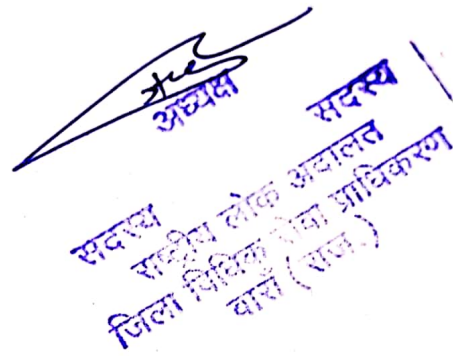 अध्यक्ष सदस्य
सदस्य
राष्ट्रीय लोक अदालत
जिला विधिक सेवा प्राधिकरण
बारां (राज.)